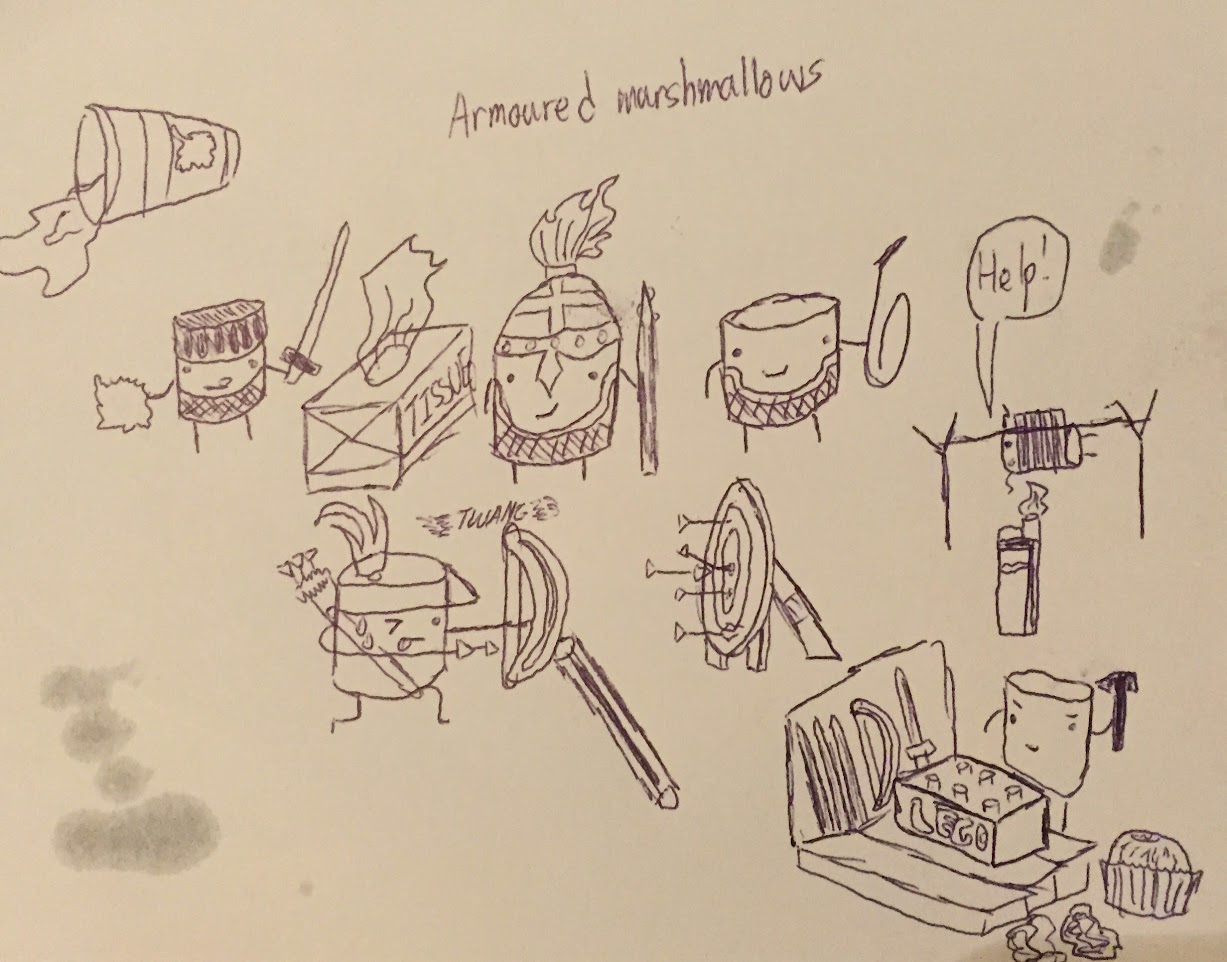 Armoured marshmallows
Help!
TISSUE
TWANG
LEGO